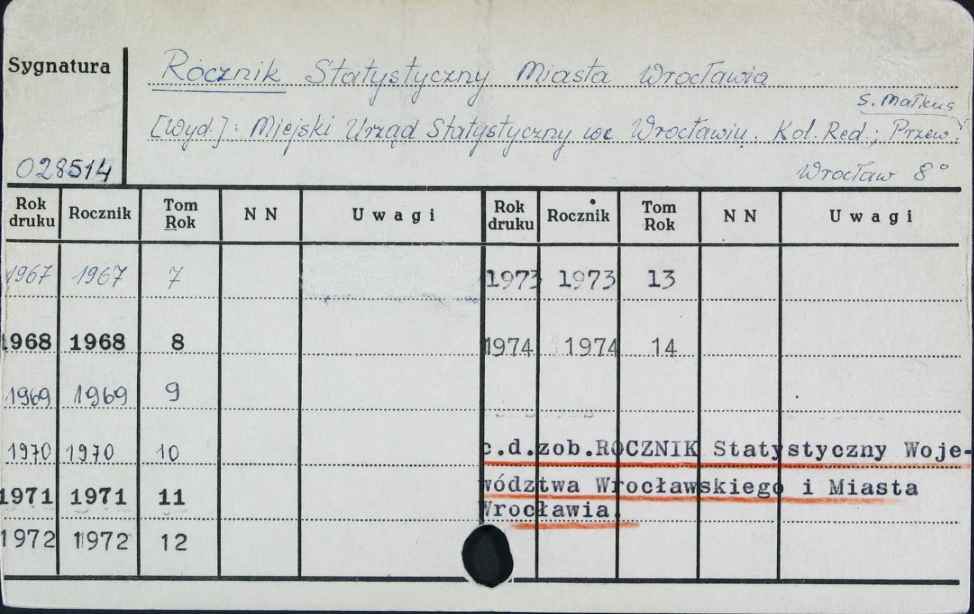 Sygnatura
Rocznik Statystyczny Miasta Wrocławia
S. Małkus
[Wyd.]: Miejski Urząd Statystyczny we Wrocławiu. Kol. Red.; Przew.
028514
Wrocław 8°
Rok druku Rocznik Tom Rok NN Uwagi Rok druku Rocznik Tom Rok NN Uwagi
1967 1967 7 1973 1973 13
1968 1968 8 1974 1974 14
1969 1969 9
1970 1970 10 c.d.zob.ROCZNIK Statystyczny Woje-
1971 1971 11 wództwa Wrocławskiego i Miasta
Wrocławia.
1972 1972 12